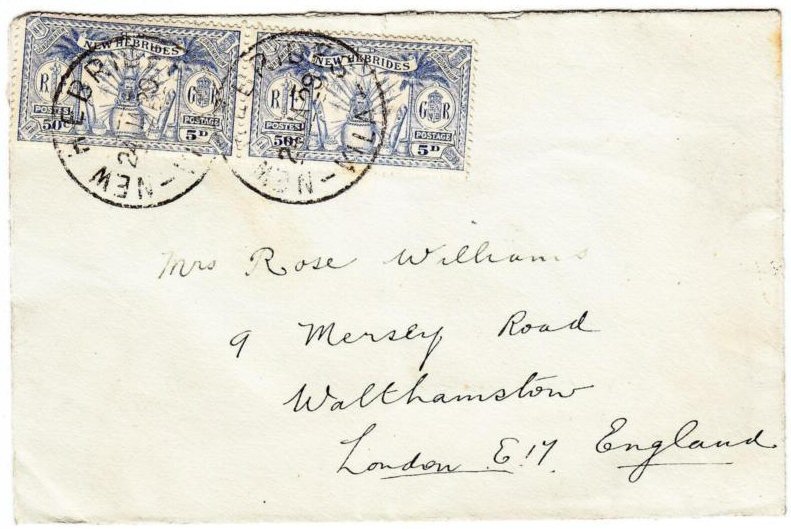 NEW HEBRIDES
R G R
POSTES POSTAGE
50c 5D
NEW HEBRIDES
R F G R
POSTES POSTAGE
50c 5D
NEW HEBRIDES
NEW HEBRIDES VILA
Mrs Rose Williams
9 Mersey Road
Walthamstow
London E.17 England